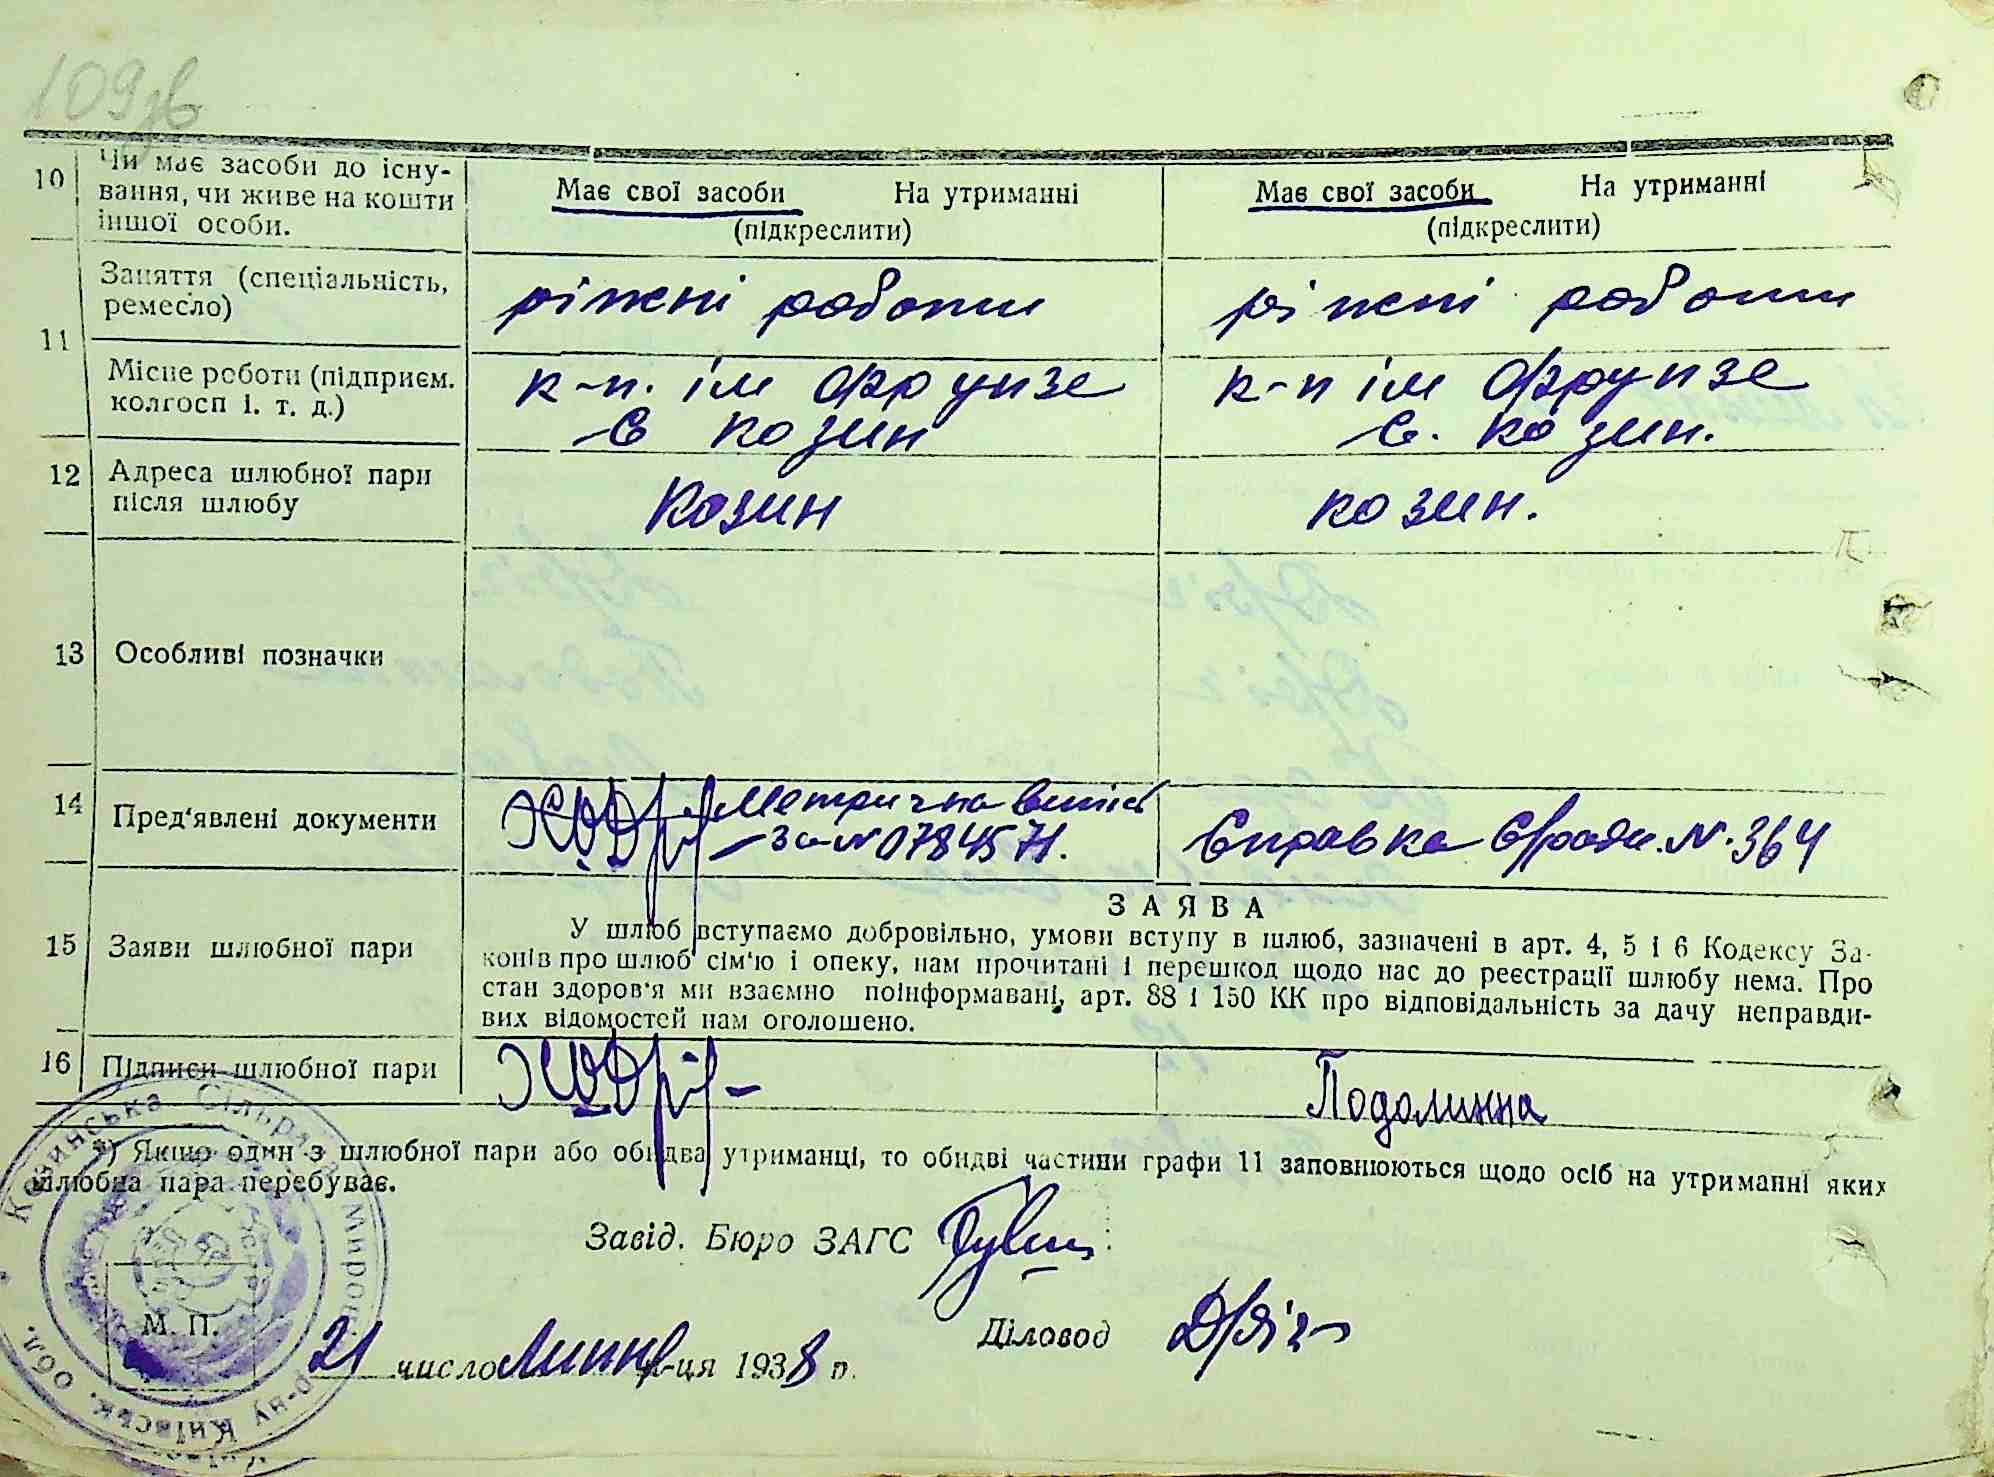 109зв
10 Чи має засоби до існу-
вання, чи живе на кошти
іншої особи.
Має свої засоби На утриманні
(підкреслити)
Має свої засоби На утриманні
(підкреслити)
11 Заняття (спеціальність,
ремесло)
ріжні роботи
ріжні роботи
Місце роботи (підприєм.
колгосп і. т. д.)
к-п. ім Фрунзе
с Козин
к-п ім Фрунзе
с. Козин.
12 Адреса шлюбної пари
після шлюбу
Козин
Козин.
13 Особливі позначки
14 Пред'явлені документи
Метрична
за № 0784571.
Справка С/ради. №. 364
15 Заяви шлюбної пари
ЗАЯВА
У шлюб вступаємо добровільно, умови вступу в шлюб, зазначені в арт. 4, 5 і 6 Кодексу За-
конів про шлюб сім'ю і опеку, нам прочитані і перешкод щодо нас до реєстрації шлюбу нема. Про
стан здоров'я ми взаємно поінформавані, арт. 88 і 150 КК про відповідальність за дачу неправди-
вих відомостей нам оголошено.
16 Підписи шлюбної пари
Подолинна
*) Якщо один з шлюбної пари або обидва утриманці, то обидві частини графи 11 заповнюються щодо осіб на утриманні яких
шлюбна пара перебуває.
Завід. Бюро ЗАГС
Діловод
М. П.
21 число липня м-ця 1938 р.
Козинська Сільрада Мирон. р-ну Київськ. Обл.